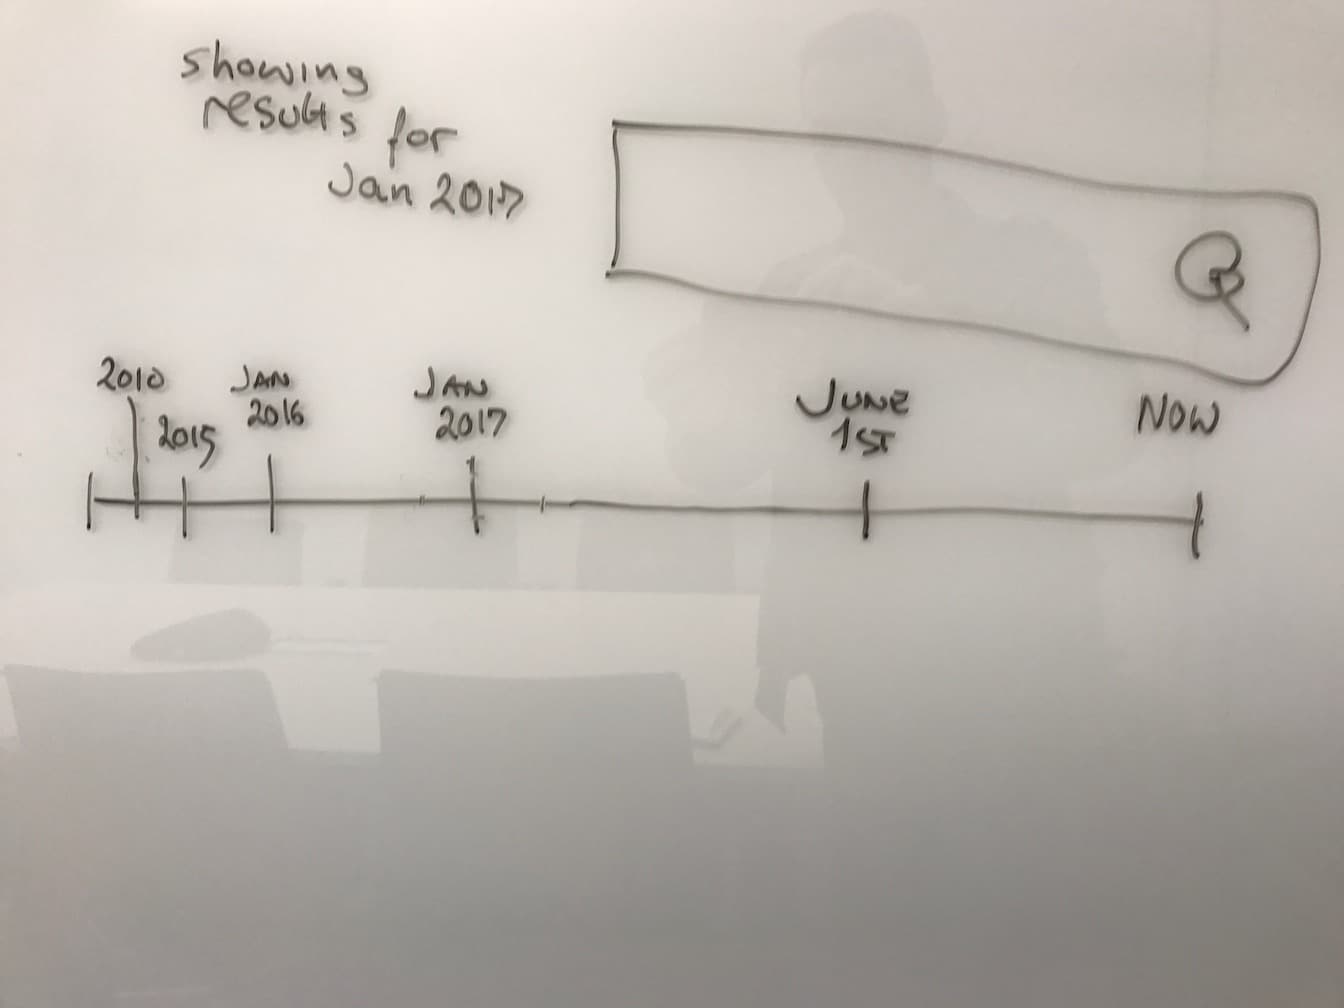 showing
results for
Jan 2017
2010
2015
JAN
2016
JAN
2017
JUNE
1ST
NOW